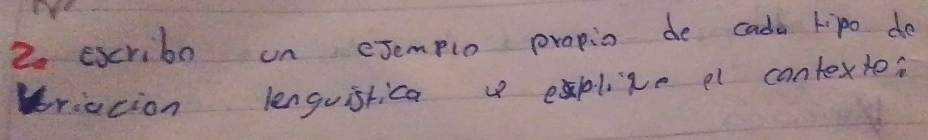 2. escriba un ejemplo propio de cada tipo de
Variacion lenguistica y explize el contexto: